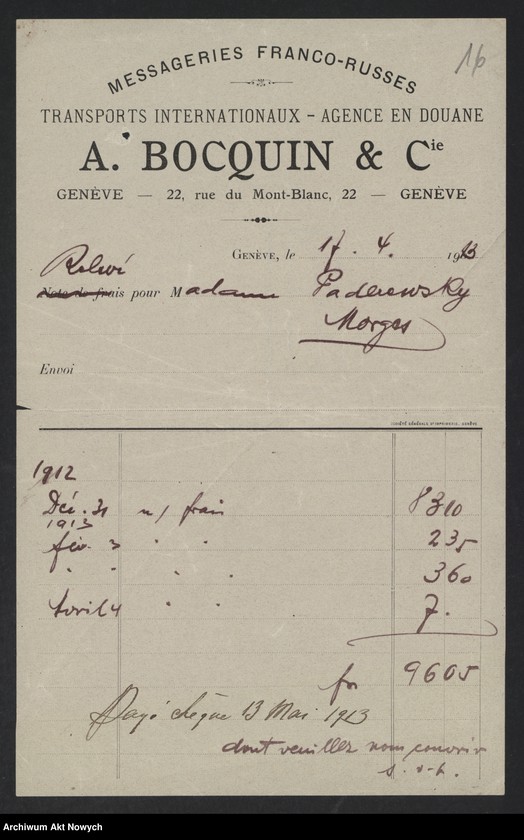 16
MESSAGERIES FRANCO-RUSSES
TRANSPORTS INTERNATIONAUX - AGENCE EN DOUANE
A. BOCQUIN & Cie
GENÈVE — 22, rue du Mont-Blanc, 22 — GENÈVE
GENÈVE, le 17. 4. 1913
Relevé
Note de frais pour Madame Paderewsky
Morges
Envoi
1912
Déc. 31 n/ frais 8310
1913
fév. 3 " " 235
" " " " 360
Avril 4 " " 7.
fr 9605
Payé chèque 13 Mai 1913
dont veuillez nous couvrir
s. v. p.
Archiwum Akt Nowych